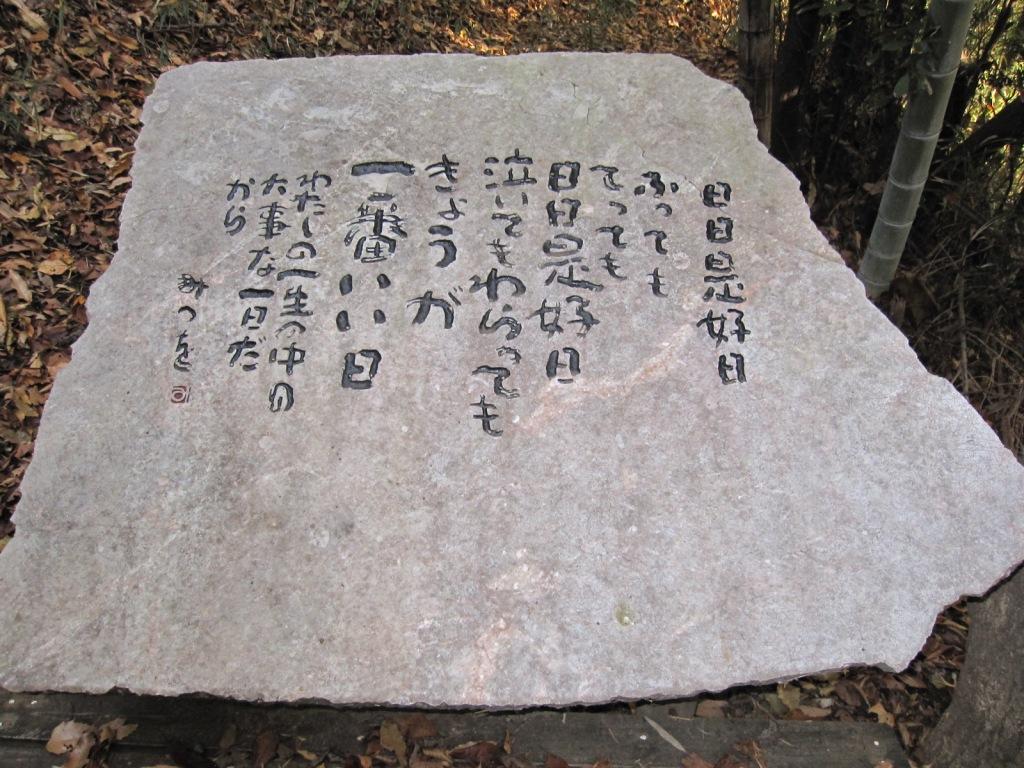 日日是好日
ふっても
てっても
日日是好日
泣いてもわらっても
きょうが
一番いい日
わたしの一生の中の
大事な一日だ
から
みつを